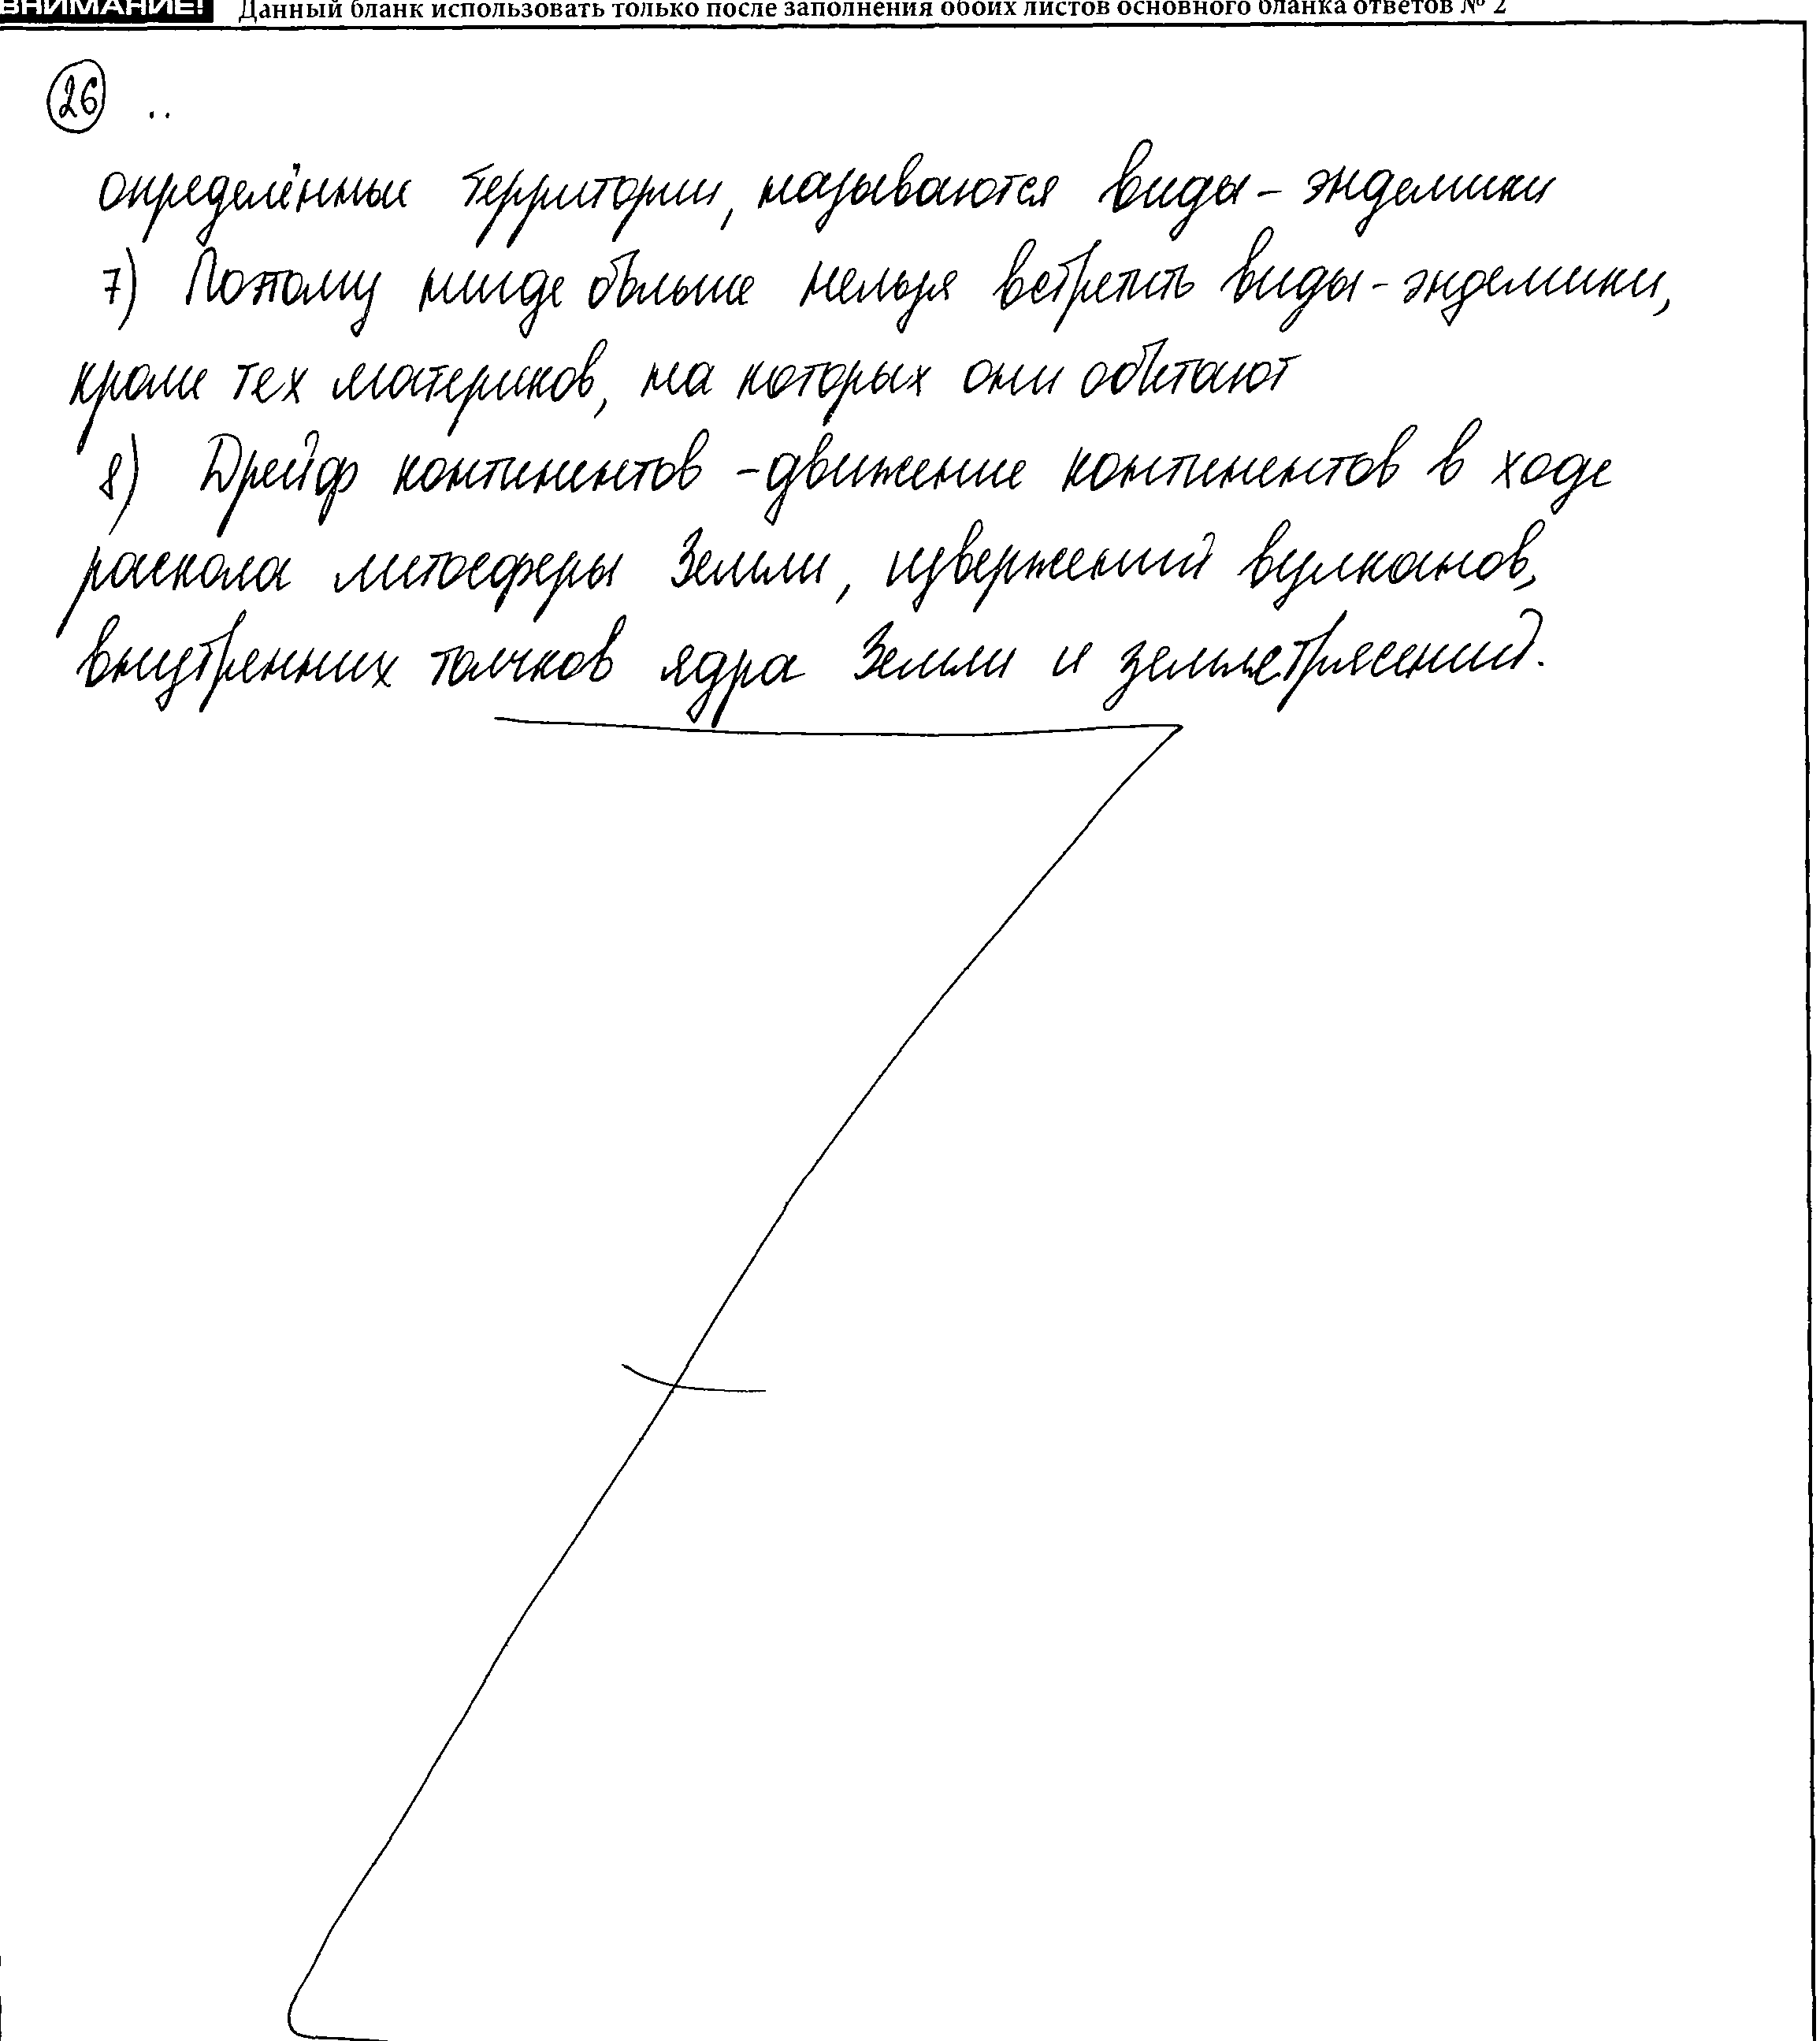 ВНИМАНИЕ! Данный бланк использовать только после заполнения обоих листов основного бланка ответов № 2
26 ..
определённые территории, называются виды - эндемики
7) Поэтому нигде больше нельзя встретить виды - эндемики,
кроме тех материков, на которых они обитают
8) Дрейф континентов - движение континентов в ходе
раскола литосферы Земли, извержений вулканов,
внутренних толчков ядра Земли и землетрясений.